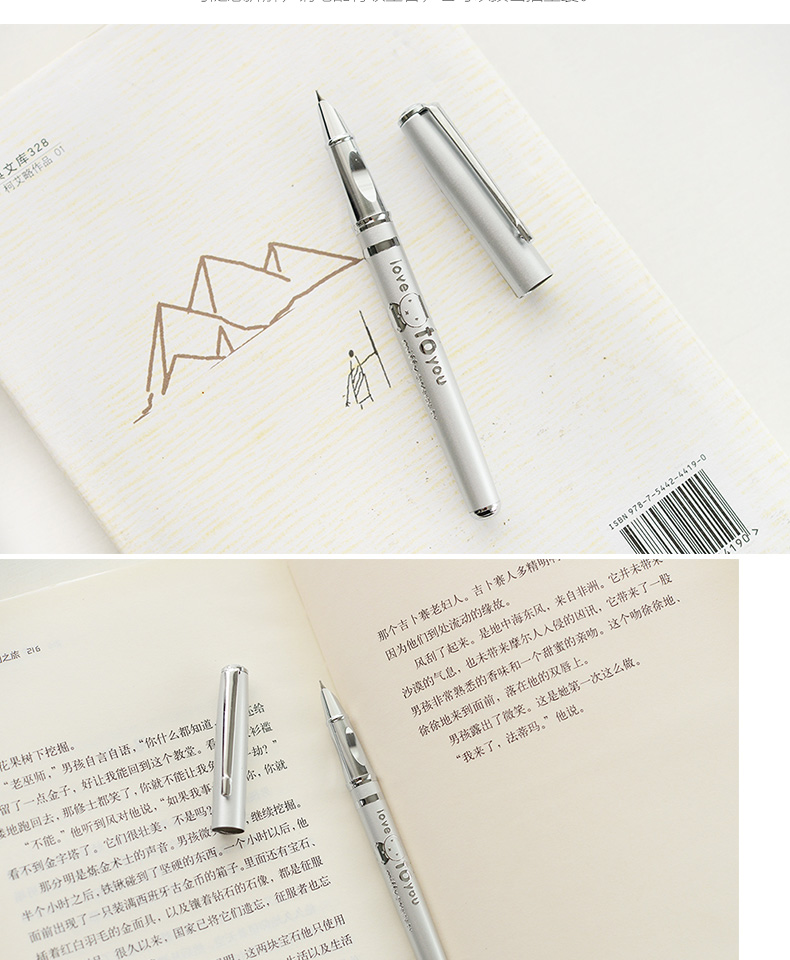 文库328
柯艾略作品 01
love
to
you
ISBN 978-7-5442-4419-0
4190
之旅 216
花果树下挖掘。
“老巫师，”男孩自言自语，“你什么都知道
留了一点金子，好让我能回到这个教堂。看
回去，那修士都笑了，你就不能让我
“不能。”他听到风对他说，“如果我事
看不到金字塔了。它们很壮美，不是吗？
那分明是炼金术士的声音。男孩微
继续挖掘。
半个小时之后，铁锹碰到了坚硬的东西。一个小时以后，他
面前出现了一只装满西班牙古金币的箱子。里面还有宝石、
插着红白羽毛的金面具，以及镶着钻石的石像，都是征服
很久以来，国家已将它们遗忘，征服者也忘
这两块宝石他只使用
生活以及生活
那个吉卜赛老妇人。吉卜赛人多精明
因为他们到处流动的缘故。
风刮了起来。是地中海东风，来自非洲。它并未带来
沙漠的气息，也未带来摩尔人入侵的凶讯，它带来了一股
男孩非常熟悉的香味和一个甜蜜的亲吻。这个吻徐徐地、
徐徐地来到面前，落在他的双唇上。
男孩露出了微笑。这是她第一次这么做。
“我来了，法蒂玛。”他说。
love
to
you